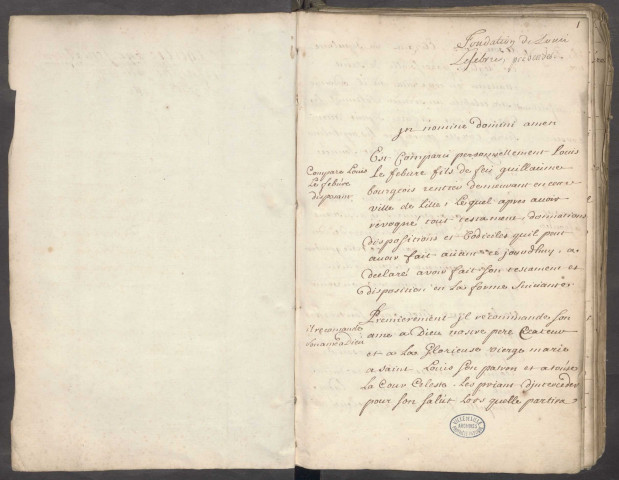 1
Fondation de Louis
Lefebvre,
Jn nomine domini amen
Compara Louis
Le febure
disposant
Est Comparu personnellement Louis
Le febure fils de feu guillaume
bourgeois rentier demeurant en cette
ville de Lille, Lequel apres avoir
révoqué tout testament, donnations
dispositions et Codiciles quil peut
avoir fait auparavant ce jourdhuy, a
declaré avoir fait son testament et
disposition en la forme suivante
il recomande
son ame a Dieu
Premierement jl recommande son
ame a Dieu nostre pere Createur
et a La Glorieuse vierge marie
a saint Louis son patron et a toute
La Cour Celeste, les priant d'interceder
pour son salut Lors quelle partira